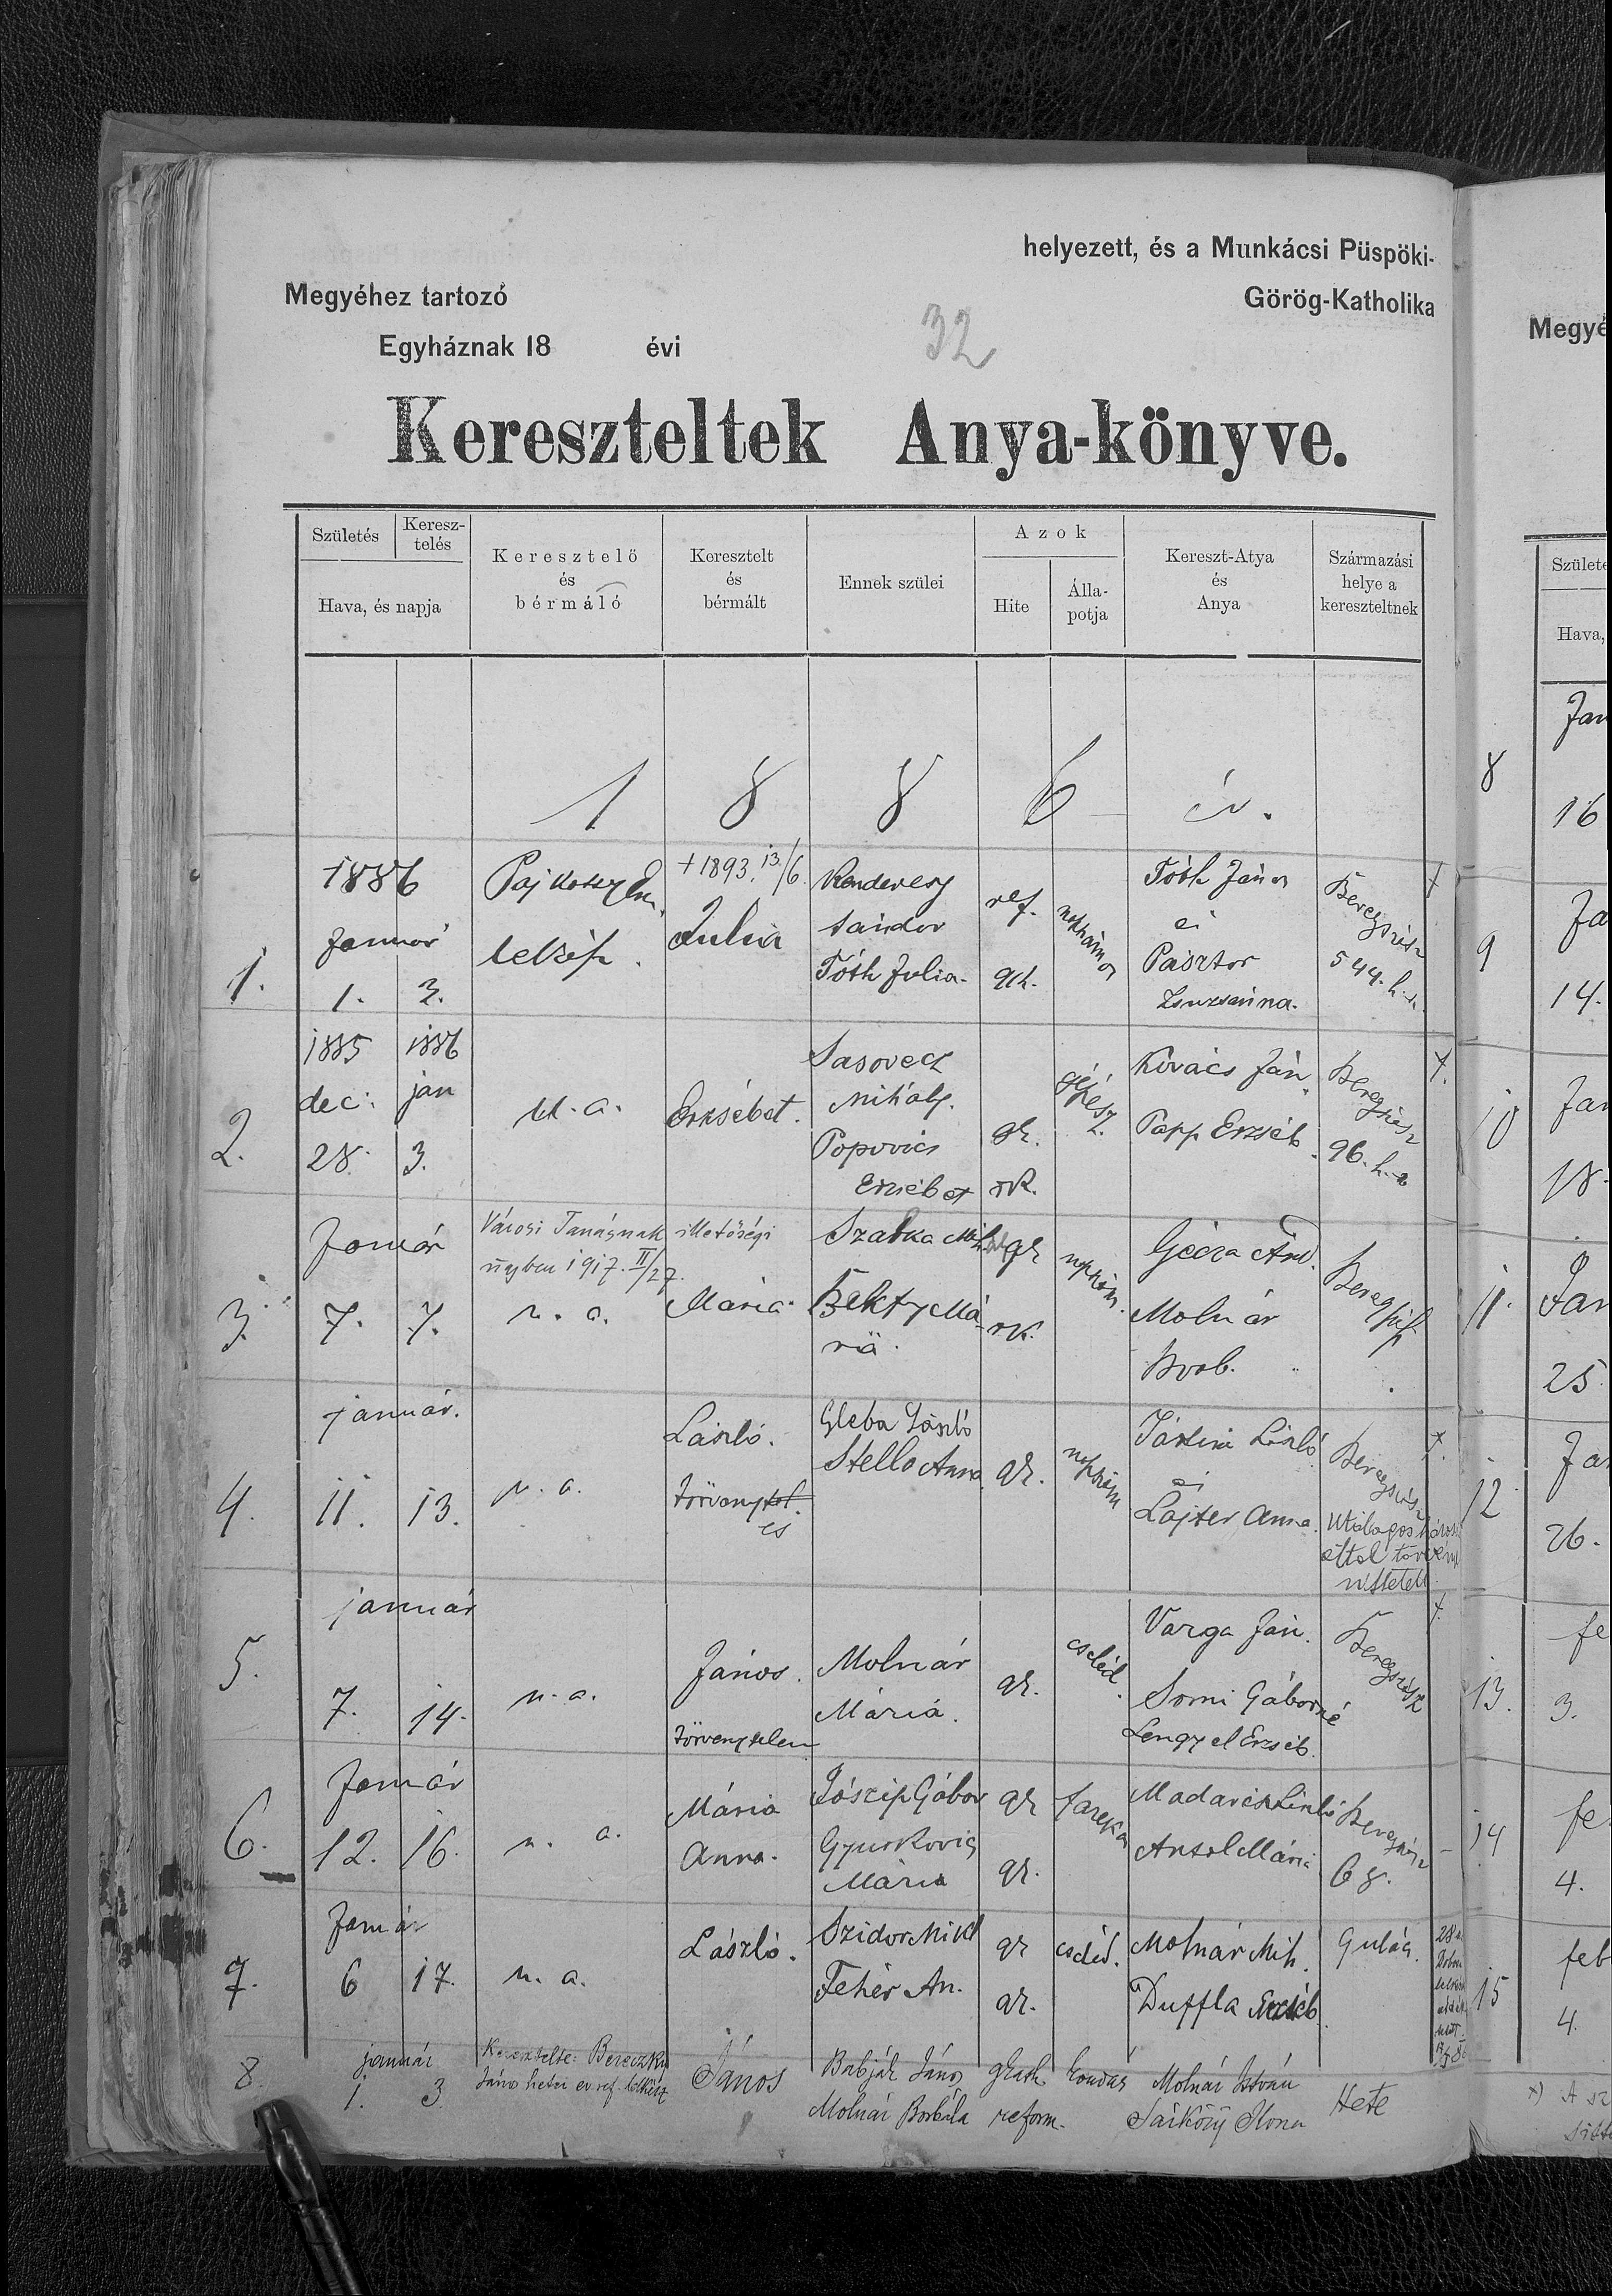 helyezett, és a Munkácsi Püspöki-
Megyéhez tartozó
Görög-Katholika
Egyháznak 18 évi
32
Kereszteltek Anya-könyve.
Születés
Keresz-
telés
Hava, és napja
Keresztelö
és
bérmáló
Keresztelt
és
bérmált
Ennek szülei
Azok
Hite
Álla-
potja
Kereszt-Atya
és
Anya
Származási
helye a
kereszteltnek
1 8 8 6 év.
1.
1886
Január
1. 3.
lelkész.
+1893. 13/6
Julia
Sándor
Tóth Julia.
ref.
gk.
Tóth János
és
Pásztor
Zsuzsánna.
Beregszász
544. h. sz.
2.
1885 1886
dec: jan
28. 3.
u. a.
Erzsébet.
Sasovecz
Mihály.
Popovics
Erzsébet
gk.
rk.
gépész.
Kovács Ján.
Papp Erzséb.
Beregszász
96. h. sz
3.
Január
7. 7.
Városi Tanácsnak illetőségi
ügyben 1917. II/27.
u. a.
Mária.
Szabka
Má-
ria.
gk
rk.
Géczа And.
Molnár
Borb.
Beregszász
4.
január.
11. 13.
u. a.
László.
Törvény
es
Gleba László
Stello Anna
gk.
László
és
Lajter Anna.
Beregszász
5.
január
7. 14.
u. a.
János.
törvénytelen
Molnár
Mária.
gk.
cseléd.
Varga Ján.
Somi Gáborné
Lengyel Erzséb.
Beregszász
6.
Január
12. 16.
u. a.
Mária
Anna.
Jószip Gábor
Gyurkovics
Mária
gk
gk.
Madarász László
Antal Mária
Beregszász
68.
7.
Január
6 17.
u. a.
László.
Szidor Mikl
Fehér An.
gk
gk.
cseléd.
Molnár Mih.
Duffla Erzséb.
Gulács.
8.
január
1. 3.
Keresztelte: Bereczky
János hetei ev. ref. lelkész
János
Babják János
Molnár Borbála
gkath.
reform.
kondás
Molnár István
Sárközy Ilona
Hete
Megyé
Születé
Hava,
8
Jan
16
9
Ja
14.
10
Jan
18.
11.
Jan
25
12
Ja
26.
13.
fe
3.
14
fe
4.
15
feb
4.